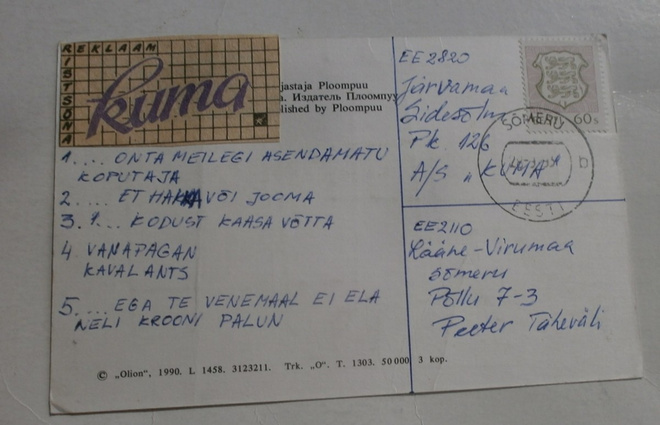 REKLAAM
RISTSÕNA
kuma
jastaja Ploompuu
а. Издатель Плоомпуу
lished by Ploompuu
1.... ON TA MEILEGI ASENDAMATU
KOPUTAJA
2.... ET HAKKA VÕI JOOMA
3. KODUST KAASA VÕTTA
4 VANAPAGAN
KAVAL ANTS
5.... EGA TE VENEMAAL EI ELA
NELI KROONI PALUN
© „Olion", 1990. L 1458. 3123211. Trk. „O". T. 1303. 50 000 3 kop.
EE2820
Järvamaa
Sidesõlm
Pk. 126
A/S „KUMA"
60s
SÕMERU
EESTI
b
EE2110
Lääne-Virumaa
Sõmeru
Põllu 7-3
Peeter Täheväli